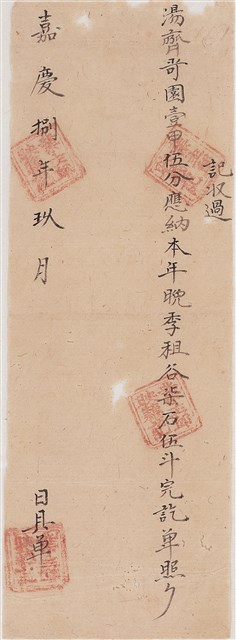 記收過
湯齊哥園壹甲伍分應納本年晚季租谷柒石伍斗完訖單照夕
嘉慶捌年玖月
日具單